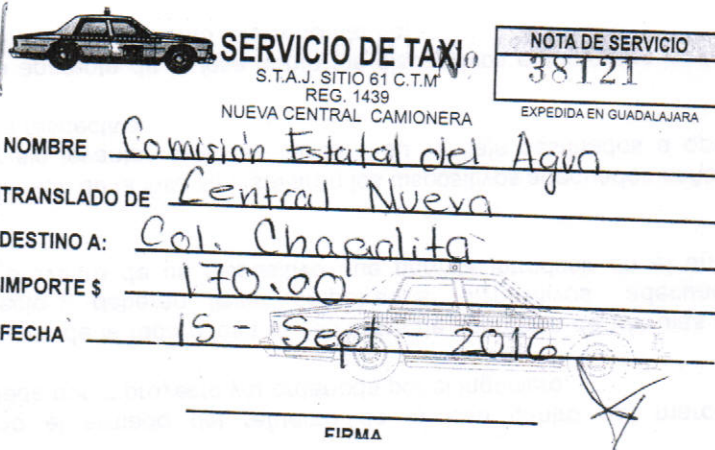 SERVICIO DE TAXI
S.T.A.J. SITIO 61 C.T.M
REG. 1439
NUEVA CENTRAL CAMIONERA
NOTA DE SERVICIO
No 38121
EXPEDIDA EN GUADALAJARA
NOMBRE Comisión Estatal del Agua
TRANSLADO DE Central Nueva
DESTINO A: Col. Chapalita
IMPORTE $ 170.00
FECHA 15 - Sept 2016
FIRMA